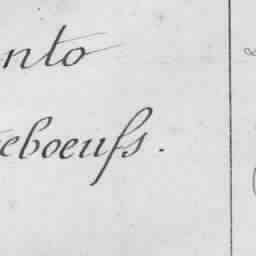 nto
eboeufs.